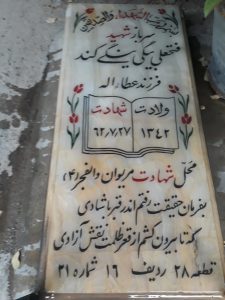 سرباز شهید
فتحعلی بیگی ینگی کند
فرزند عطاراله
ولادت
۱۳۴۲
شهادت
۶۲/۷/۲۷
محل شهادت مریوان والفجر(۴)
بفرمان حقیقت رفتم اندر قبر با شادی
که تا بیرون کشم از قعر ظلمت نقش آزادی
قطعه ۲۸ ردیف ۱۶ شماره ۲۱